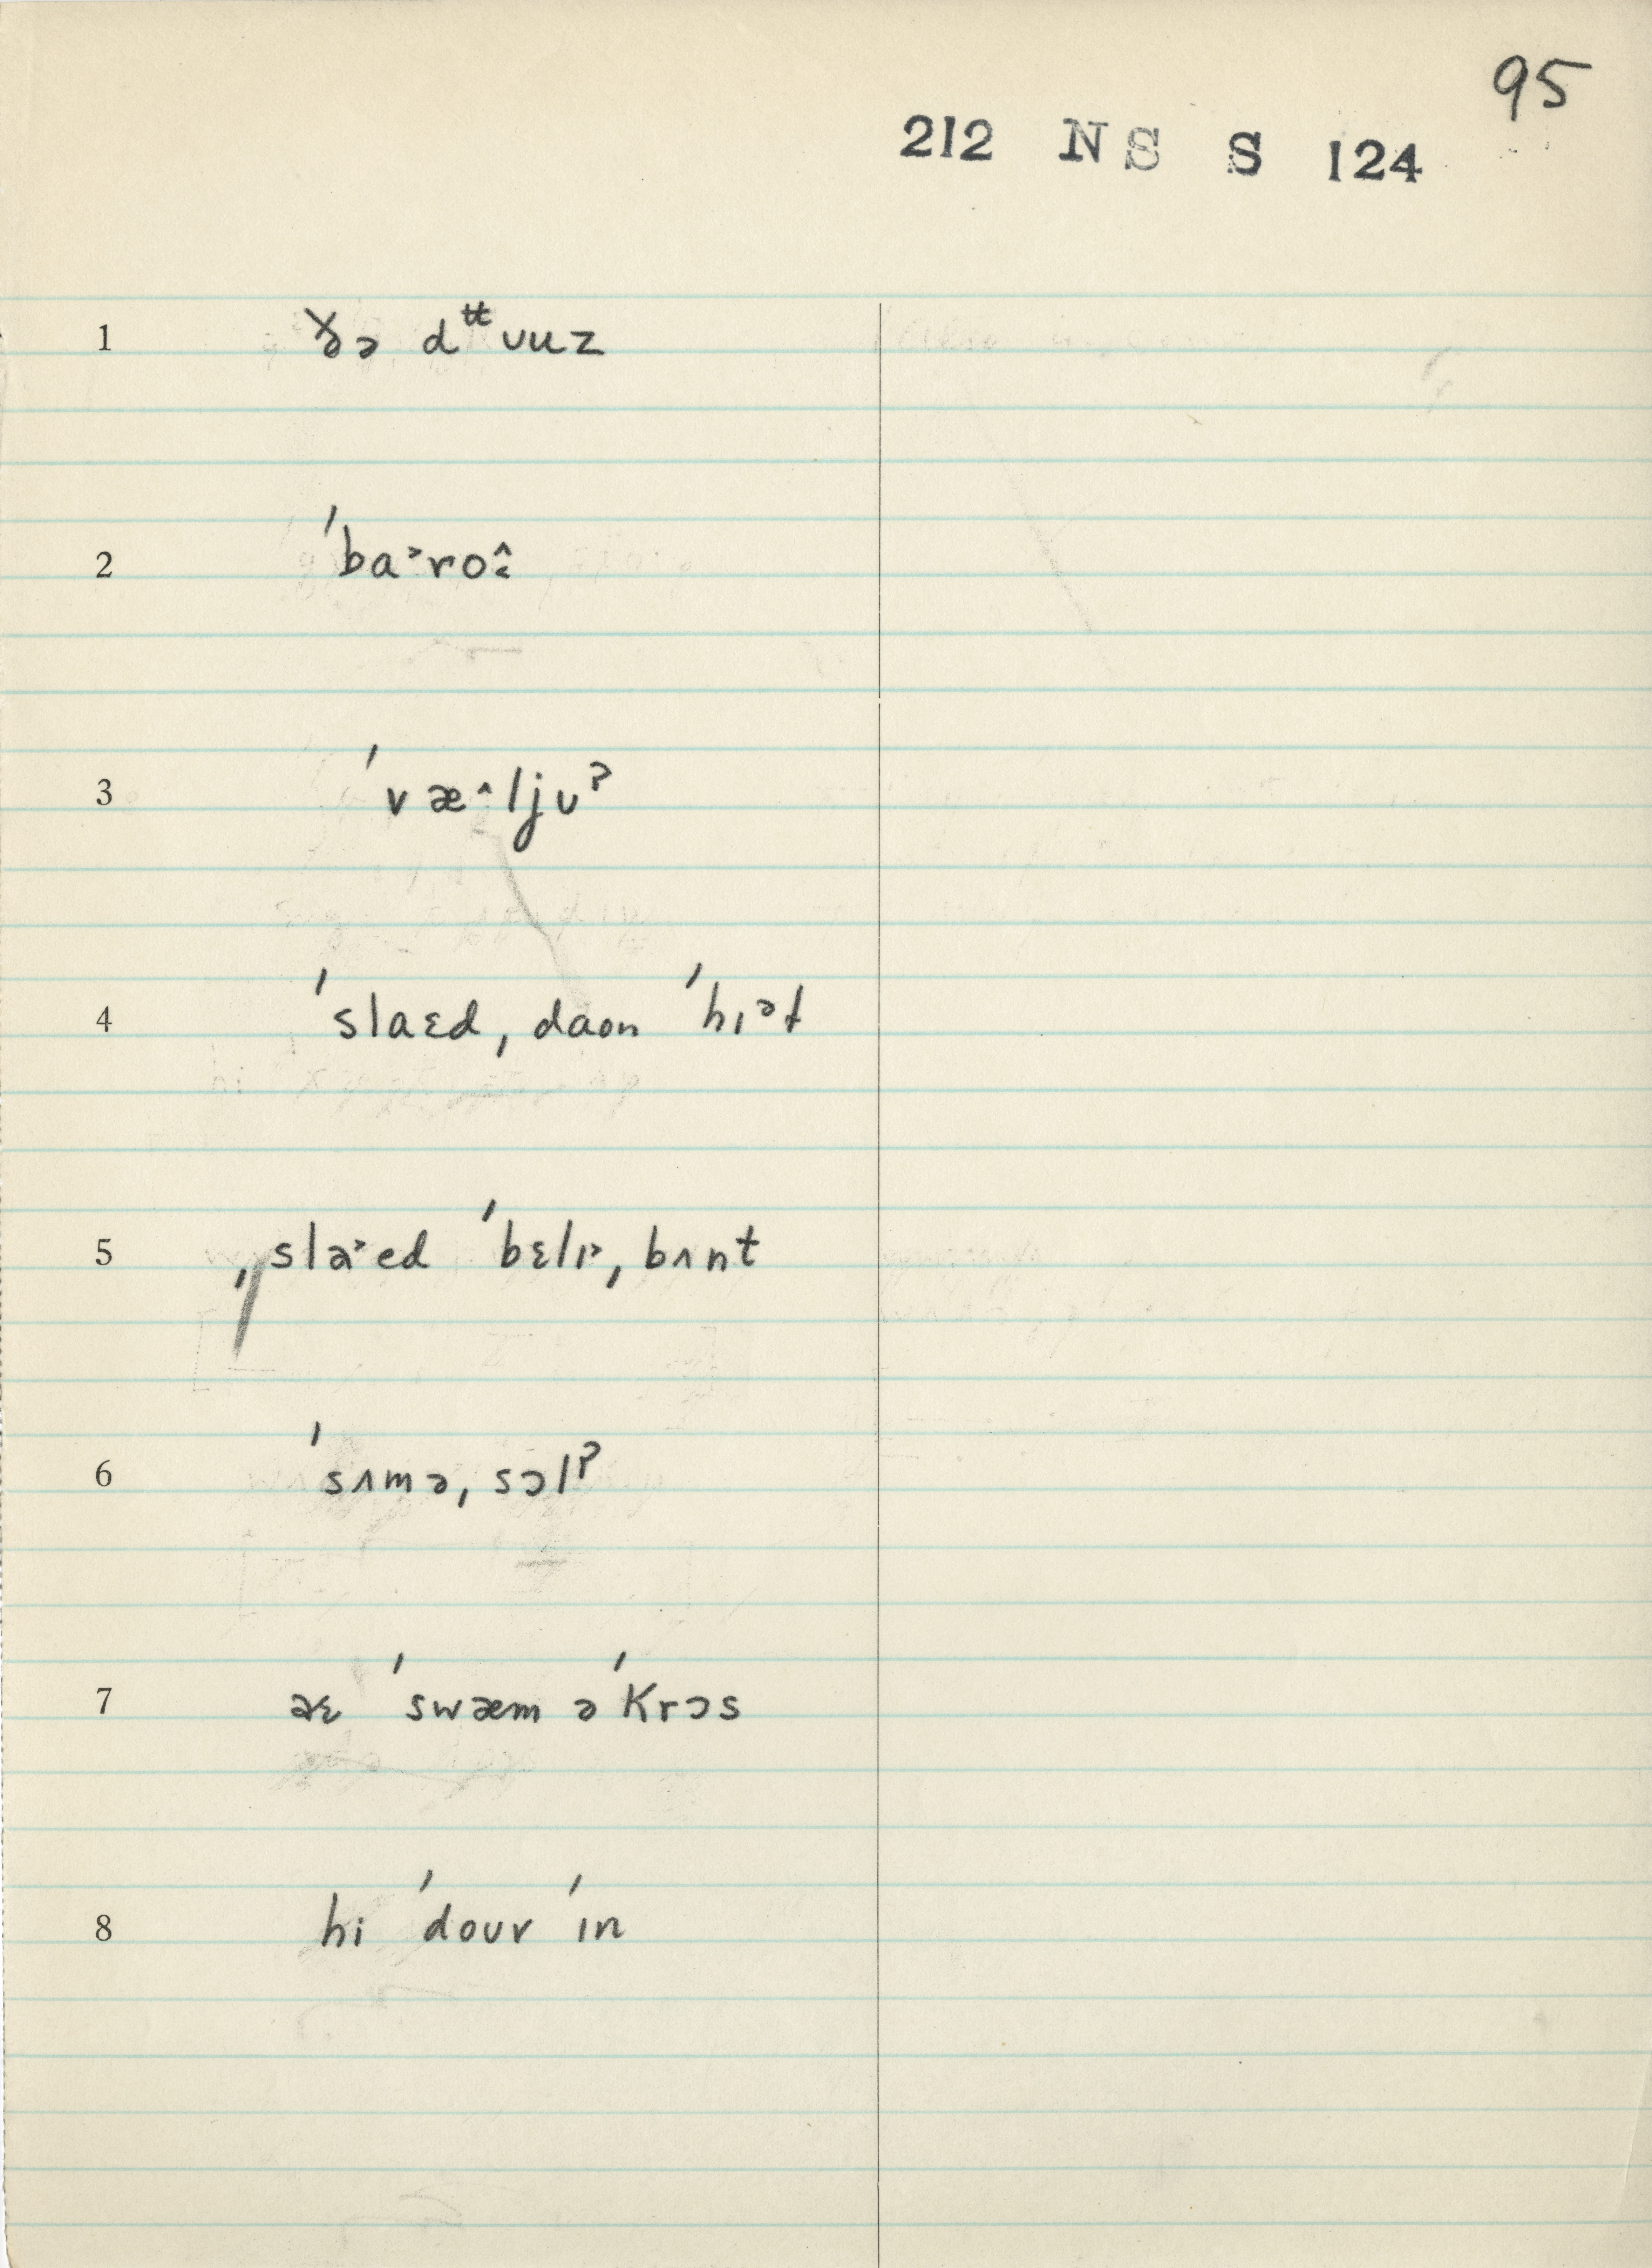 95
212 NS S 124
1 ðə dᵗᵗʊuz
2 ˈba˃rô̭
3 ˈvæ˄ljʊˀ
4 ˈslaɛd, daon ˈhɪᵊt
5 ˌslaˈ˃ed ˈbɛlɪ˃, bʌnt
6 ˈsʌmə, sɔlˀ
7 aɛ ˈswæm əˈkrɔs
8 hi ˈdouv ˈɪn